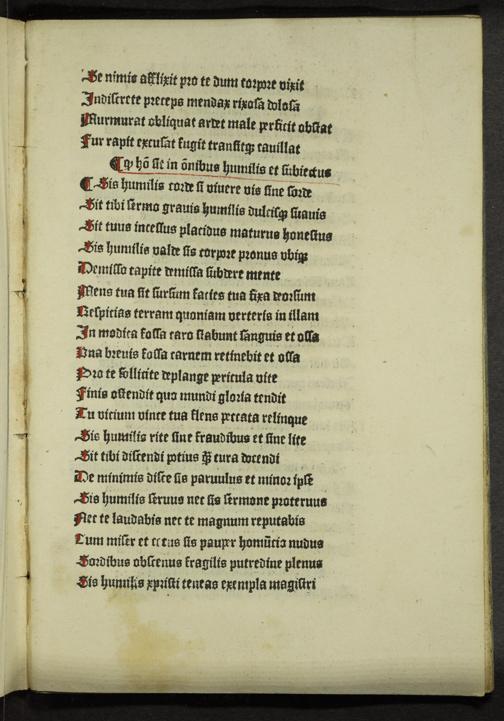 Se nimis afflixit pro te dum corpore vixit
Indiscrete preceps mendax rixosa dolosa
Murmurat obliquat ardet male perficit obstat
Fur rapit excusat fugit transitqꝫ cauillat
¶ Qp hō sit in ōnibus humilis et subiectus
¶ Sis humilis corde si viuere vis sine sorde
Sit tibi sermo grauis humilis dulcisqꝫ suauis
Sit tuus incessus placidus maturus honestus
Sis humilis valde sis corpore pronus vbiqꝫ
Demisso capite demissa subdere mente
Mens tua sit sursum facies tua fixa deorsum
Respicias terram quoniam verteris in illam
In modica fossa caro stabunt sanguis et ossa
Vna breuis fossa carnem retinebit et ossa
Pro te sollicite deplange pericula vite
Finis ostendit quo mundi gloria tendit
Tu vicium vince tua flens peccata relinque
Sis humilis rite sine fraudibus et sine lite
Sit tibi discendi potius q̃ʒ cura docendi
De minimis disce sis paruulus et minor ipse
Sis humilis seruus nec sis sermone proteruus
Nec te laudabis nec te magnum reputabis
Cum miser et cetus sis pauper homūcio nudus
Sordibus obscenus fragilis putredine plenus
Sis humilis xpristi teneas exempla magistri